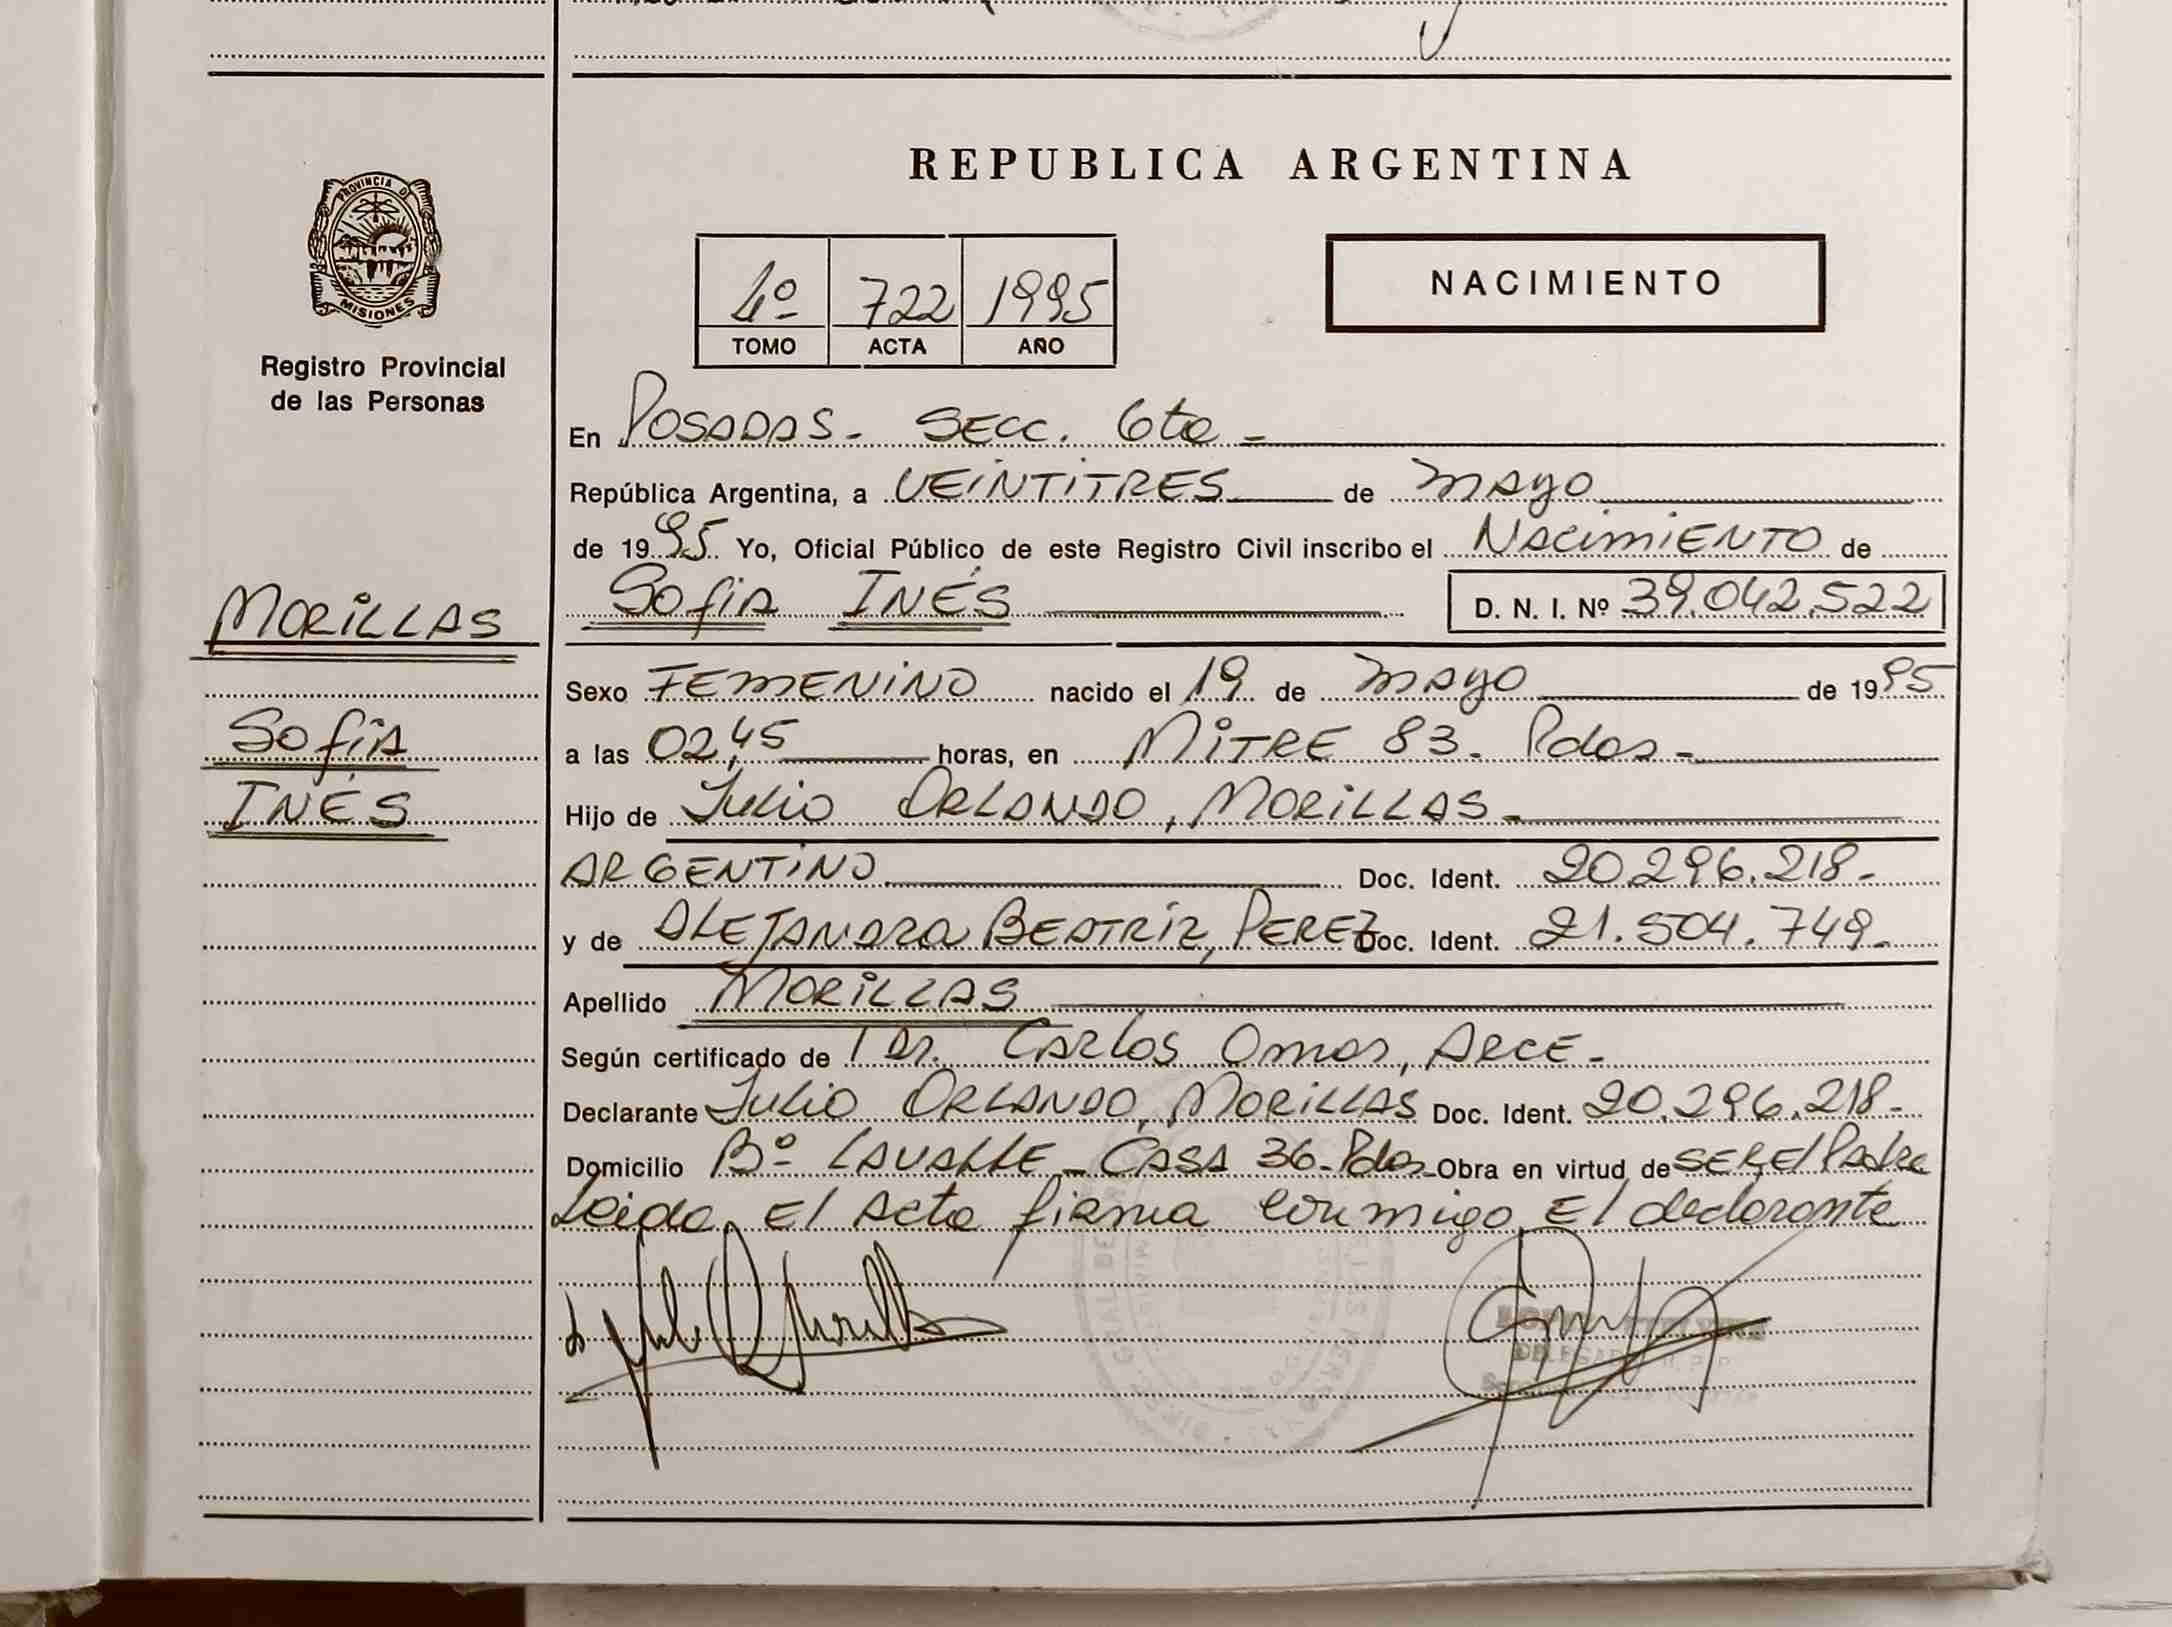 REPUBLICA ARGENTINA
PROVINCIA DE
MISIONES
Registro Provincial
de las Personas
4º 722 1995
TOMO ACTA AÑO
NACIMIENTO
En POSADAS - SECC. 6ta -
República Argentina, a VEINTITRES de mayo
de 1995 Yo, Oficial Público de este Registro Civil inscribo el NACIMIENTO de
MORILLAS
Sofia INÉS D. N. I. Nº 39.042.522
Sexo FEMENINO nacido el 19 de mayo de 1995
Sofia
a las 02,45 horas, en MITRE 83 - Pdas -
INÉS
Hijo de Julio ORLANDO, MORILLAS -
ARGENTINO Doc. Ident. 20.296.218 -
y de ALEJANDRA BEATRIZ, PEREZ Doc. Ident. 21.504.749 -
Apellido MORILLAS
Según certificado de Dr. CARLOS Omar, ARCE -
Declarante Julio ORLANDO, MORILLAS Doc. Ident. 20.296.218 -
Domicilio Bº LAVALLE - CASA 36 - Pdas - Obra en virtud de SER El Padre
Leida El Acta firma conmigo El declarante